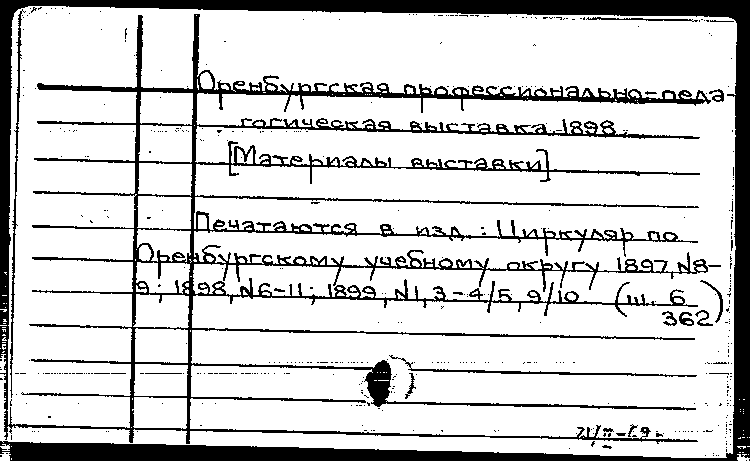 Оренбургская профессионально-педа-
гогическая выставка 1898.
[Материалы выставки]
Печатаются в изд.: Циркуляр по
Оренбургскому учебному округу 1897, N8-
9; 1898, N6-11; 1899, N1, 3-4/5, 9/10 (ш. 6
362).